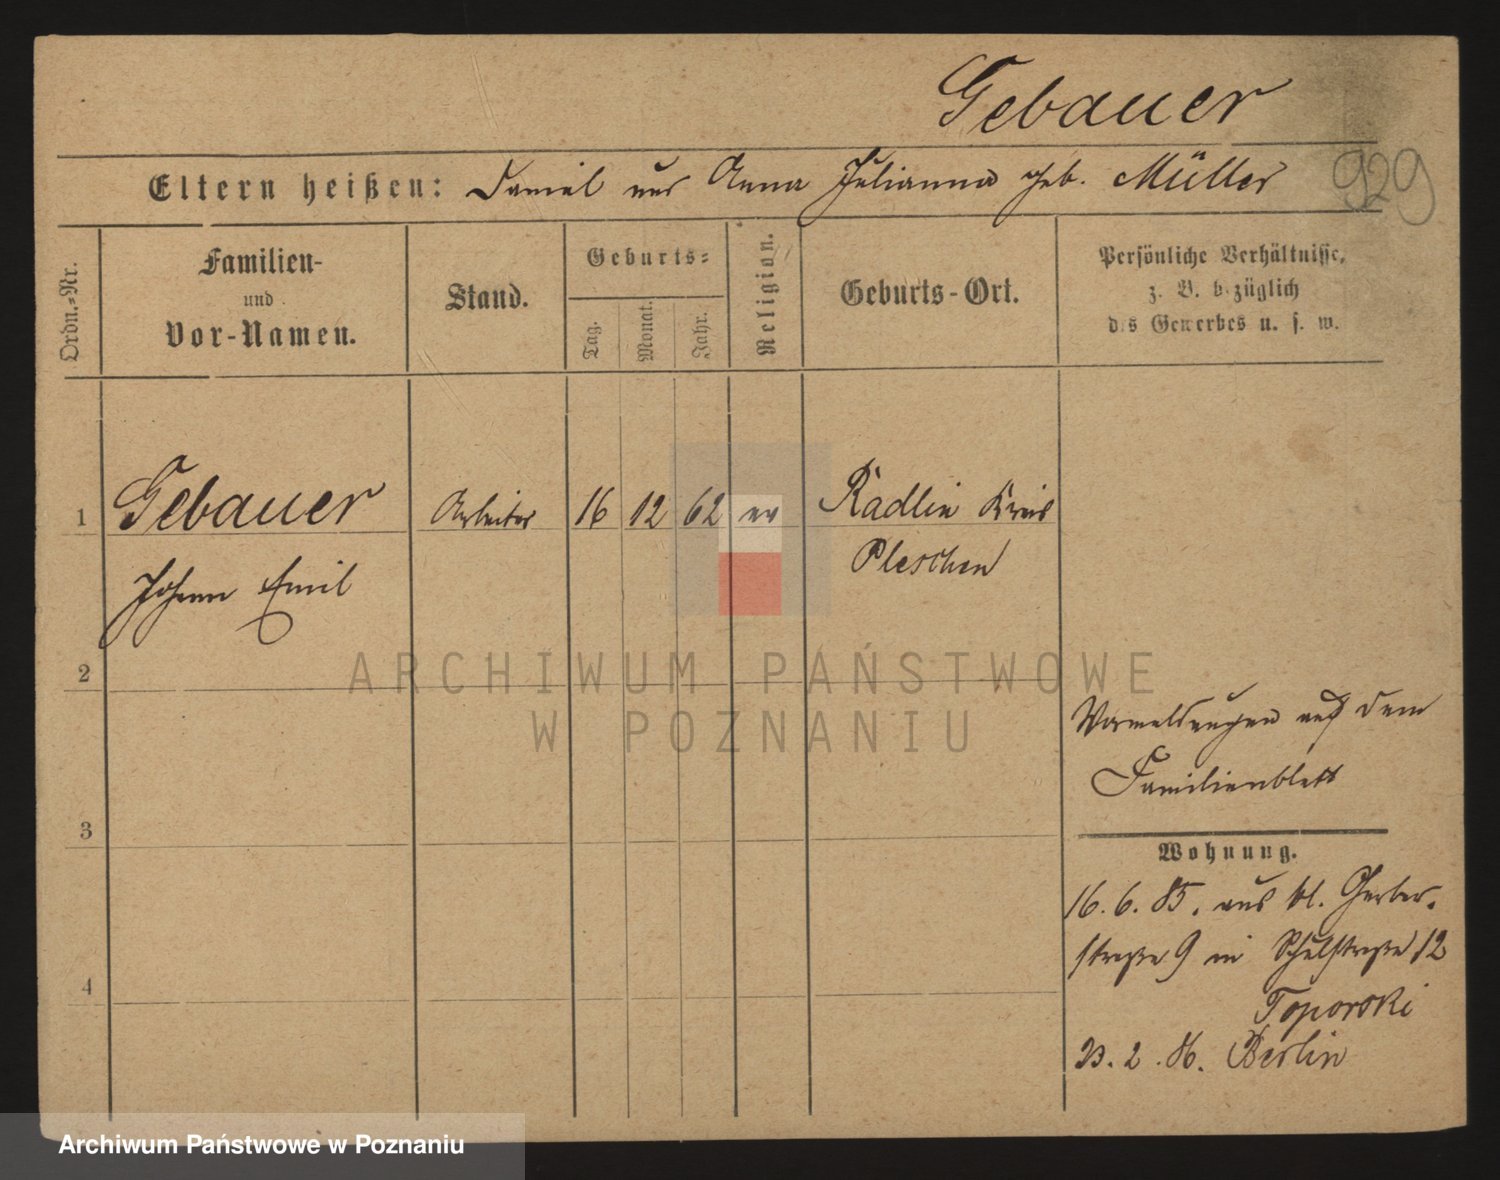 Gebauer
929
Eltern heißen: Daniel und Anna Julianna geb. Müller
Ordn.-Nr.
Familien-
und
Vor-Namen.
Stand.
Geburts-
Tag.
Monat.
Jahr.
Religion.
Geburts-Ort.
Persönliche Verhältnisse,
z. B. bezüglich
des Gewerbes u. s. w.
1 Gebauer Arbeiter 16 12 62 ev Radlin Kreis
Johann Emil Pleschen
2
ARCHIWUM PAŃSTWOWE
W POZNANIU
Vormeldungen auf dem
Familienblatt
3
Wohnung.
16. 6. 85. aus kl. Gerber-
straße 9 in Schulstraße 12
4
Toporski
23. 2. 86. Berlin
Archiwum Państwowe w Poznaniu